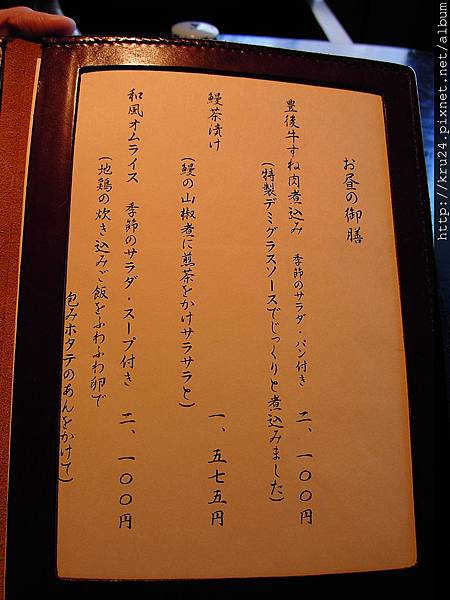 お昼の御膳
豊後牛すね肉煮込み 季節のサラダ・パン付き 二、一〇〇円
(特製デミグラスソースでじっくりと煮込みました)
鰻茶漬け 一、五七五円
(鰻の山椒煮に煎茶をかけサラサラと)
和風オムライス 季節のサラダ・スープ付き 二、一〇〇円
(地鶏の炊き込みご飯をふわふわ卵で
包みホタテのあんをかけて)
http://kru24.pixnet.net/album